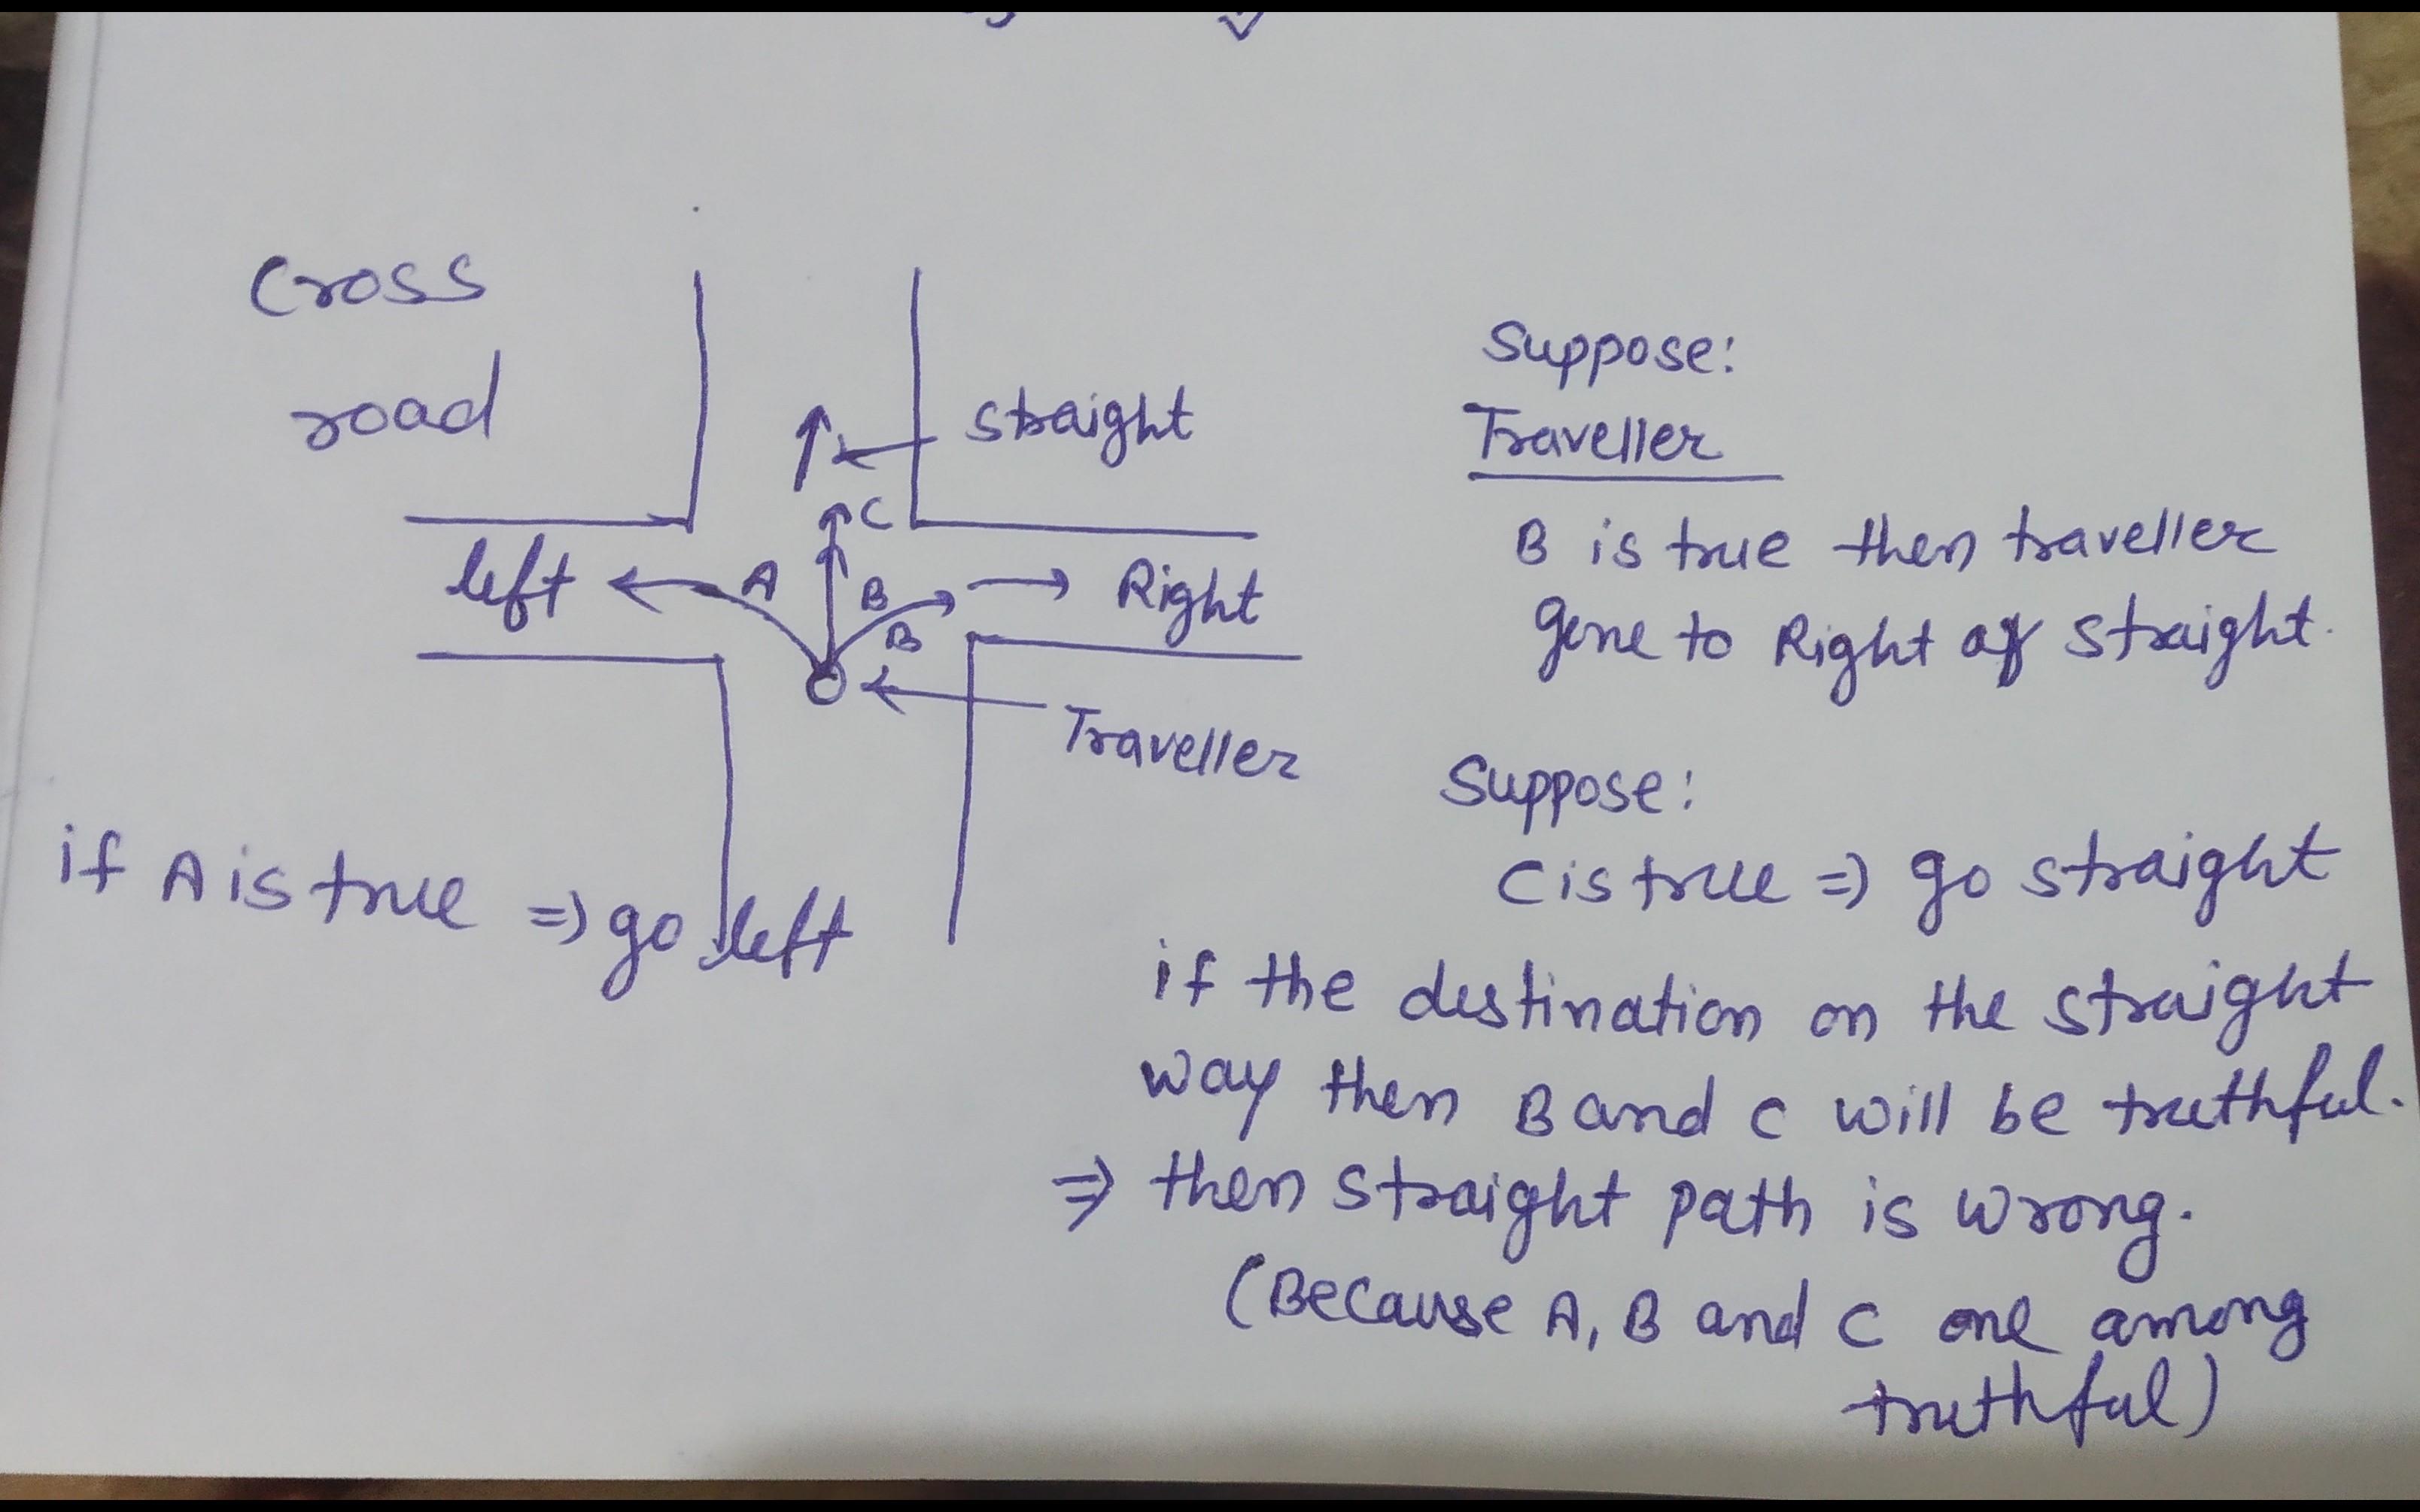 Cross
road
straight
C
left
A
B
Right
B
Traveller
if A is true => go left
Suppose:
Traveller
B is true then traveller
gone to Right of straight.
Suppose:
C is true => go straight
if the destination on the straight
way then B and C will be truthful.
=> then straight path is wrong.
(Because A, B and C one among
truthful)